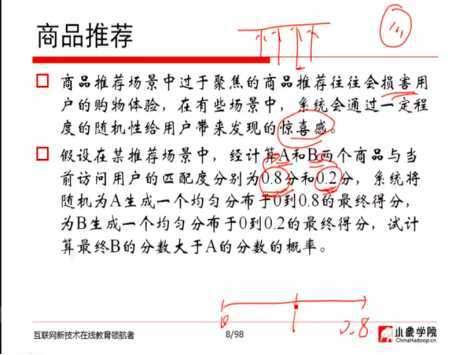 商品推荐
商品推荐场景中过于聚焦的商品推荐往往会损害用
户的购物体验，在有些场景中，系统会通过一定程
度的随机性给用户带来发现的惊喜感。
假设在某推荐场景中，经计算A和B两个商品与当
前访问用户的匹配度分别为0.8分和0.2分，系统将
随机为A生成一个均匀分布于0到0.8的最终得分，
为B生成一个均匀分布于0到0.2的最终得分，试计
算最终B的分数大于A的分数的概率。
0 0.8
互联网新技术在线教育领航者 8/98 小象学院
ChinaHadoop.cn